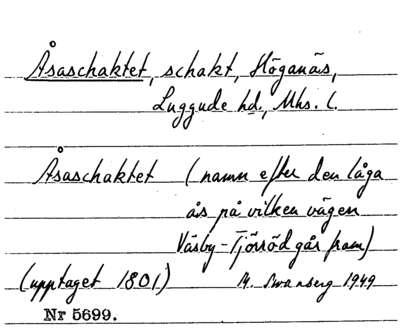 Åsaschaktet, schakt, Höganäs,
Luggude hd., Mhs. l.
Åsaschaktet (namn efter den låga
ås på vilken vägen
Väsby-Tjörröd går fram)
(upptaget 1801) M. Swanberg 1949
Nr 5699.